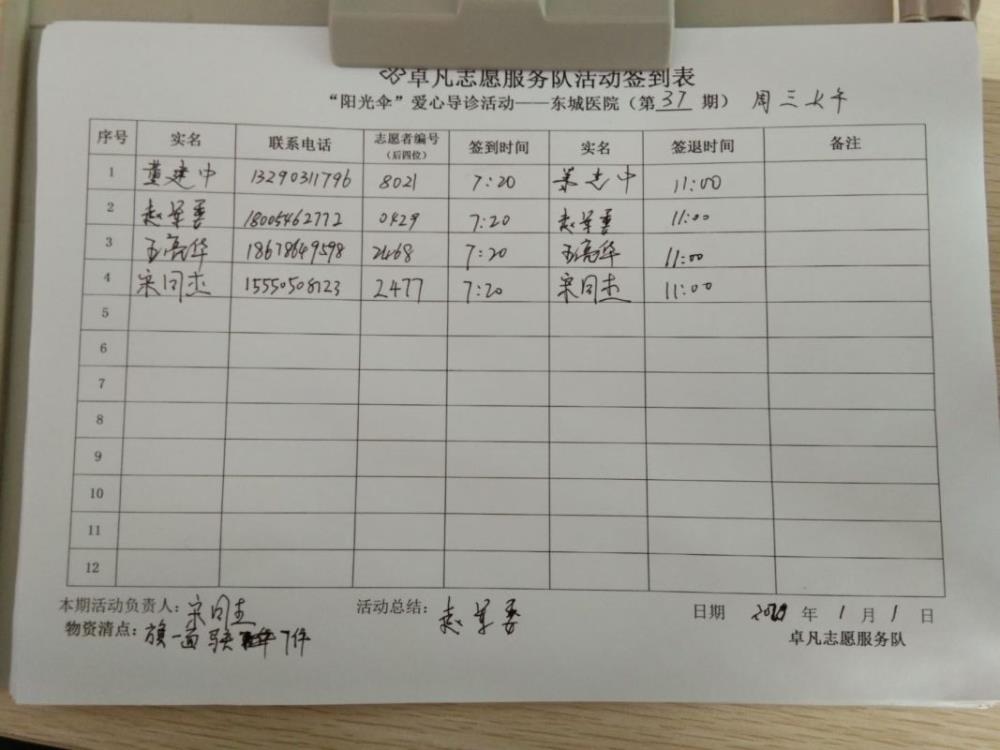 卓凡志愿服务队活动签到表
“阳光伞”爱心导诊活动——东城医院（第 37 期） 周三上午
序号 实名 联系电话 志愿者编号（后四位） 签到时间 实名 签退时间 备注
1 董建中 13290311796 8021 7:20 中 11:00
2 赵 18005462772 0429 7:20 赵 11:00
3 王亮华 18678649598 2468 7:20 王亮华 11:00
4 宋同杰 15550508123 2477 7:20 宋同杰 11:00
5
6
7
8
9
10
11
12
本期活动负责人：宋同杰 活动总结：赵 日期 年 1 月 1 日
物资清点：旗一面 7件 卓凡志愿服务队